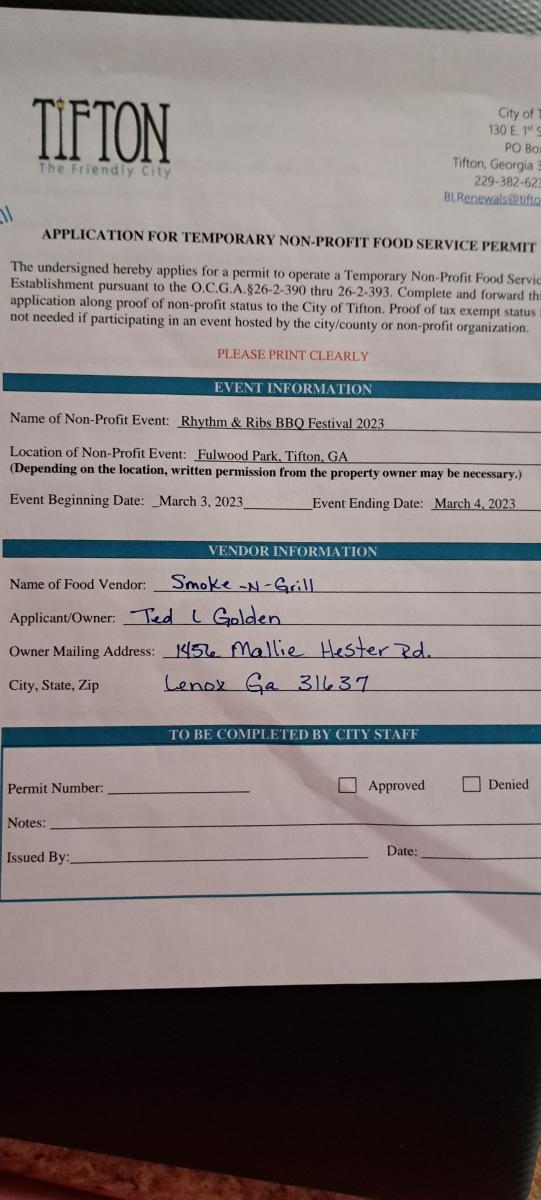 TIFTON
The Friendly City
City of
130 E. 1st
PO Bo
Tifton, Georgia
229-382-62
BLRenewals@tifto
APPLICATION FOR TEMPORARY NON-PROFIT FOOD SERVICE PERMIT
The undersigned hereby applies for a permit to operate a Temporary Non-Profit Food Servic
Establishment pursuant to the O.C.G.A.§26-2-390 thru 26-2-393. Complete and forward th
application along proof of non-profit status to the City of Tifton. Proof of tax exempt status
not needed if participating in an event hosted by the city/county or non-profit organization.
PLEASE PRINT CLEARLY
EVENT INFORMATION
Name of Non-Profit Event: Rhythm & Ribs BBQ Festival 2023
Location of Non-Profit Event: Fulwood Park, Tifton, GA
(Depending on the location, written permission from the property owner may be necessary.)
Event Beginning Date: _March 3, 2023 Event Ending Date: March 4, 2023
VENDOR INFORMATION
Name of Food Vendor: Smoke-N-Grill
Applicant/Owner: Ted L Golden
Owner Mailing Address: 1456 Mallie Hester Rd.
City, State, Zip Lenox Ga 31637
TO BE COMPLETED BY CITY STAFF
Permit Number: Approved Denied
Notes:
Issued By: Date: